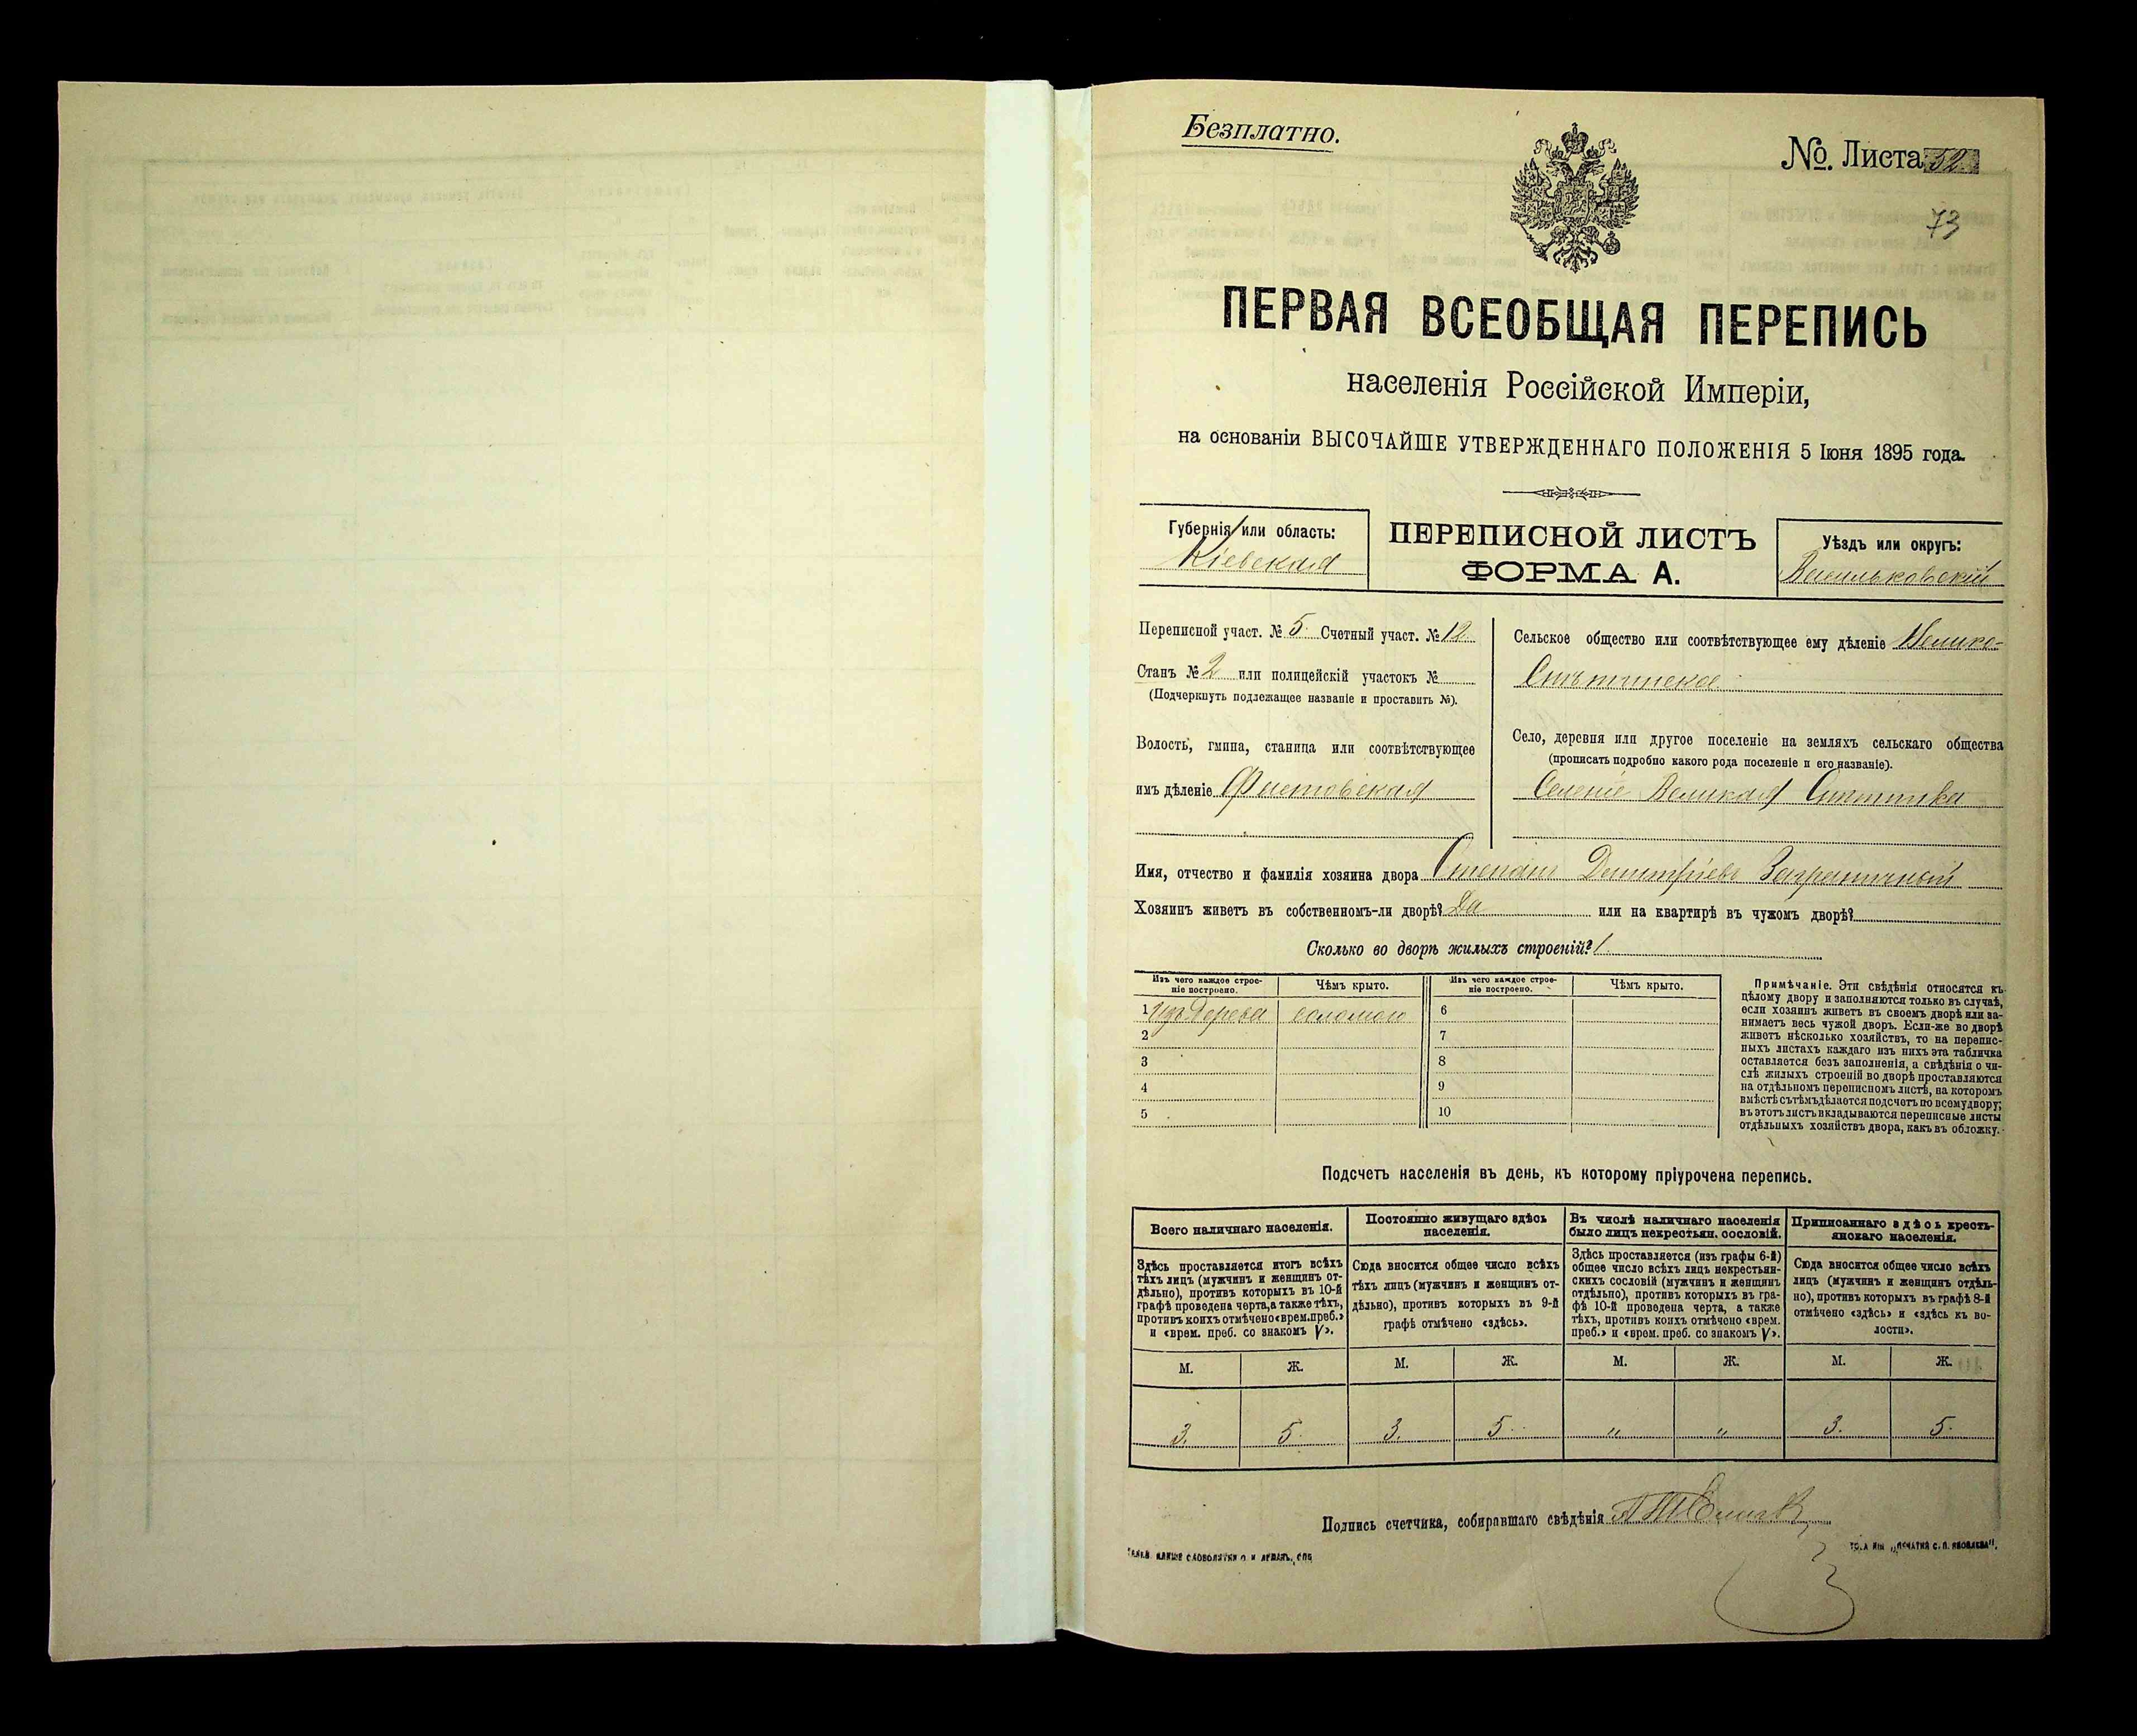 Безплатно.
№. Листа 52
73
ПЕРВАЯ ВСЕОБЩАЯ ПЕРЕПИСЬ
населенія Россійской Имперіи,
на основаніи ВЫСОЧАЙШЕ УТВЕРЖДЕННАГО ПОЛОЖЕНІЯ 5 Іюня 1895 года.
Губернія или область:
Кіевская
ПЕРЕПИСНОЙ ЛИСТЪ
ФОРМА А.
Уѣздъ или округъ:
Васильковскій
Переписной участ. № 5. Счетный участ. № 12.
Станъ № 2 или полицейскій участокъ №
(Подчеркнуть подлежащее названіе и проставить №).
Волость, гмина, станица или соотвѣтствующее
имъ дѣленіе Фастовская
Сельское общество или соотвѣтствующее ему дѣленіе Велико-
Снѣтинское
Село, деревня или другое поселеніе на земляхъ сельскаго общества
(прописать подробно какого рода поселеніе и его названіе).
Селеніе Великая Снитинка
Имя, отчество и фамилія хозяина двора Степанъ Димитріевъ Заграничный
Хозяинъ живетъ въ собственномъ-ли дворѣ? Да или на квартирѣ въ чужомъ дворѣ?
Сколько во дворѣ жилыхъ строеній? 1
Изъ чего каждое строе-
ніе построено.
Чѣмъ крыто.
Изъ чего каждое строе-
ніе построено.
Чѣмъ крыто.
1 изъ дерева соломою 6
2 7
3 8
4 9
5 10
Примѣчаніе. Эти свѣдѣнія относятся къ
цѣлому двору и заполняются только въ случаѣ,
если хозяинъ живетъ въ своемъ дворѣ или за-
нимаетъ весь чужой дворъ. Если-же во дворѣ
живетъ нѣсколько хозяйствъ, то на перепис-
ныхъ листахъ каждаго изъ нихъ эта табличка
оставляется безъ заполненія, а свѣдѣнія о чи-
слѣ жилыхъ строеній во дворѣ проставляются
на отдѣльномъ переписномъ листѣ, на которомъ
вмѣстѣ съ тѣмъ дѣлается подсчетъ по всему двору;
въ этотъ листъ вкладываются переписные листы
отдѣльныхъ хозяйствъ двора, какъ въ обложку.
Подсчетъ населенія въ день, къ которому пріурочена перепись.
Всего наличнаго населенія.
Здѣсь проставляется итогъ всѣхъ
тѣхъ лицъ (мужчинъ и женщинъ от-
дѣльно), противъ которыхъ въ 10-й
графѣ проведена черта, а также тѣхъ,
противъ коихъ отмѣчено «врем. преб.»
и «врем. преб. со знакомъ V».
Постоянно живущаго здѣсь
населенія.
Сюда вносится общее число всѣхъ
тѣхъ лицъ (мужчинъ и женщинъ от-
дѣльно), противъ которыхъ въ 9-й
графѣ отмѣчено «здѣсь».
Въ числѣ наличнаго населенія
было лицъ некрестьян. сословій.
Здѣсь проставляется (изъ графы 6-й)
общее число всѣхъ лицъ некрестьян-
скихъ сословій (мужчинъ и женщинъ
отдѣльно), противъ которыхъ въ гра-
фѣ 10-й проведена черта, а также
тѣхъ, противъ коихъ отмѣчено «врем.
преб.» и «врем. преб. со знакомъ V».
Приписаннаго здѣсь кресть-
янскаго населенія.
Сюда вносится общее число всѣхъ
лицъ (мужчинъ и женщинъ отдѣль-
но), противъ которыхъ въ графѣ 8-й
отмѣчено «здѣсь» и «здѣсь къ во-
лости».
М. Ж. М. Ж. М. Ж. М. Ж.
3. 5. 3. 5. " " 3. 5.
Подпись счетчика, собиравшаго свѣдѣнія